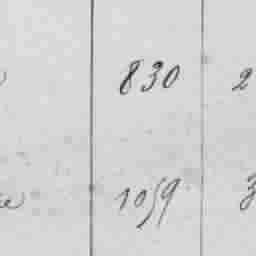 830 2
1059 3